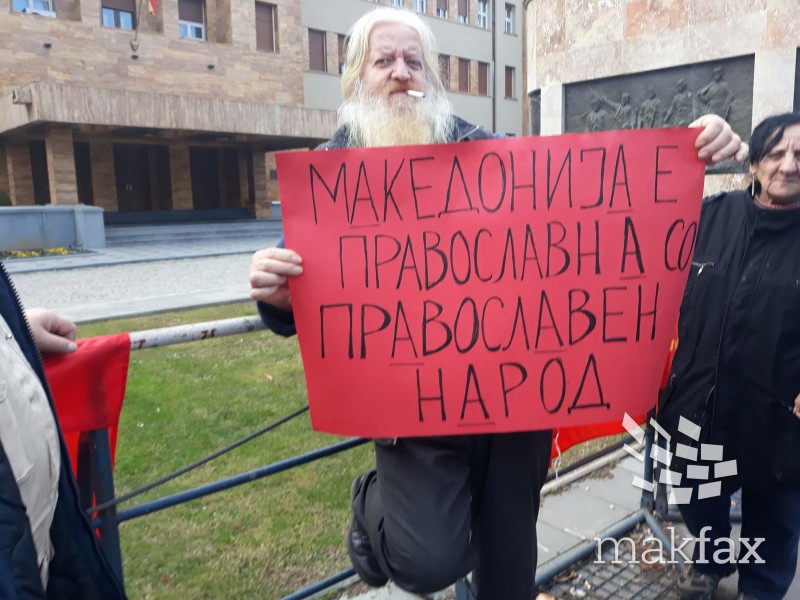 МАКЕДОНИЈА Е
ПРАВОСЛАВНА СО
ПРАВОСЛАВЕН
НАРОД
makfax